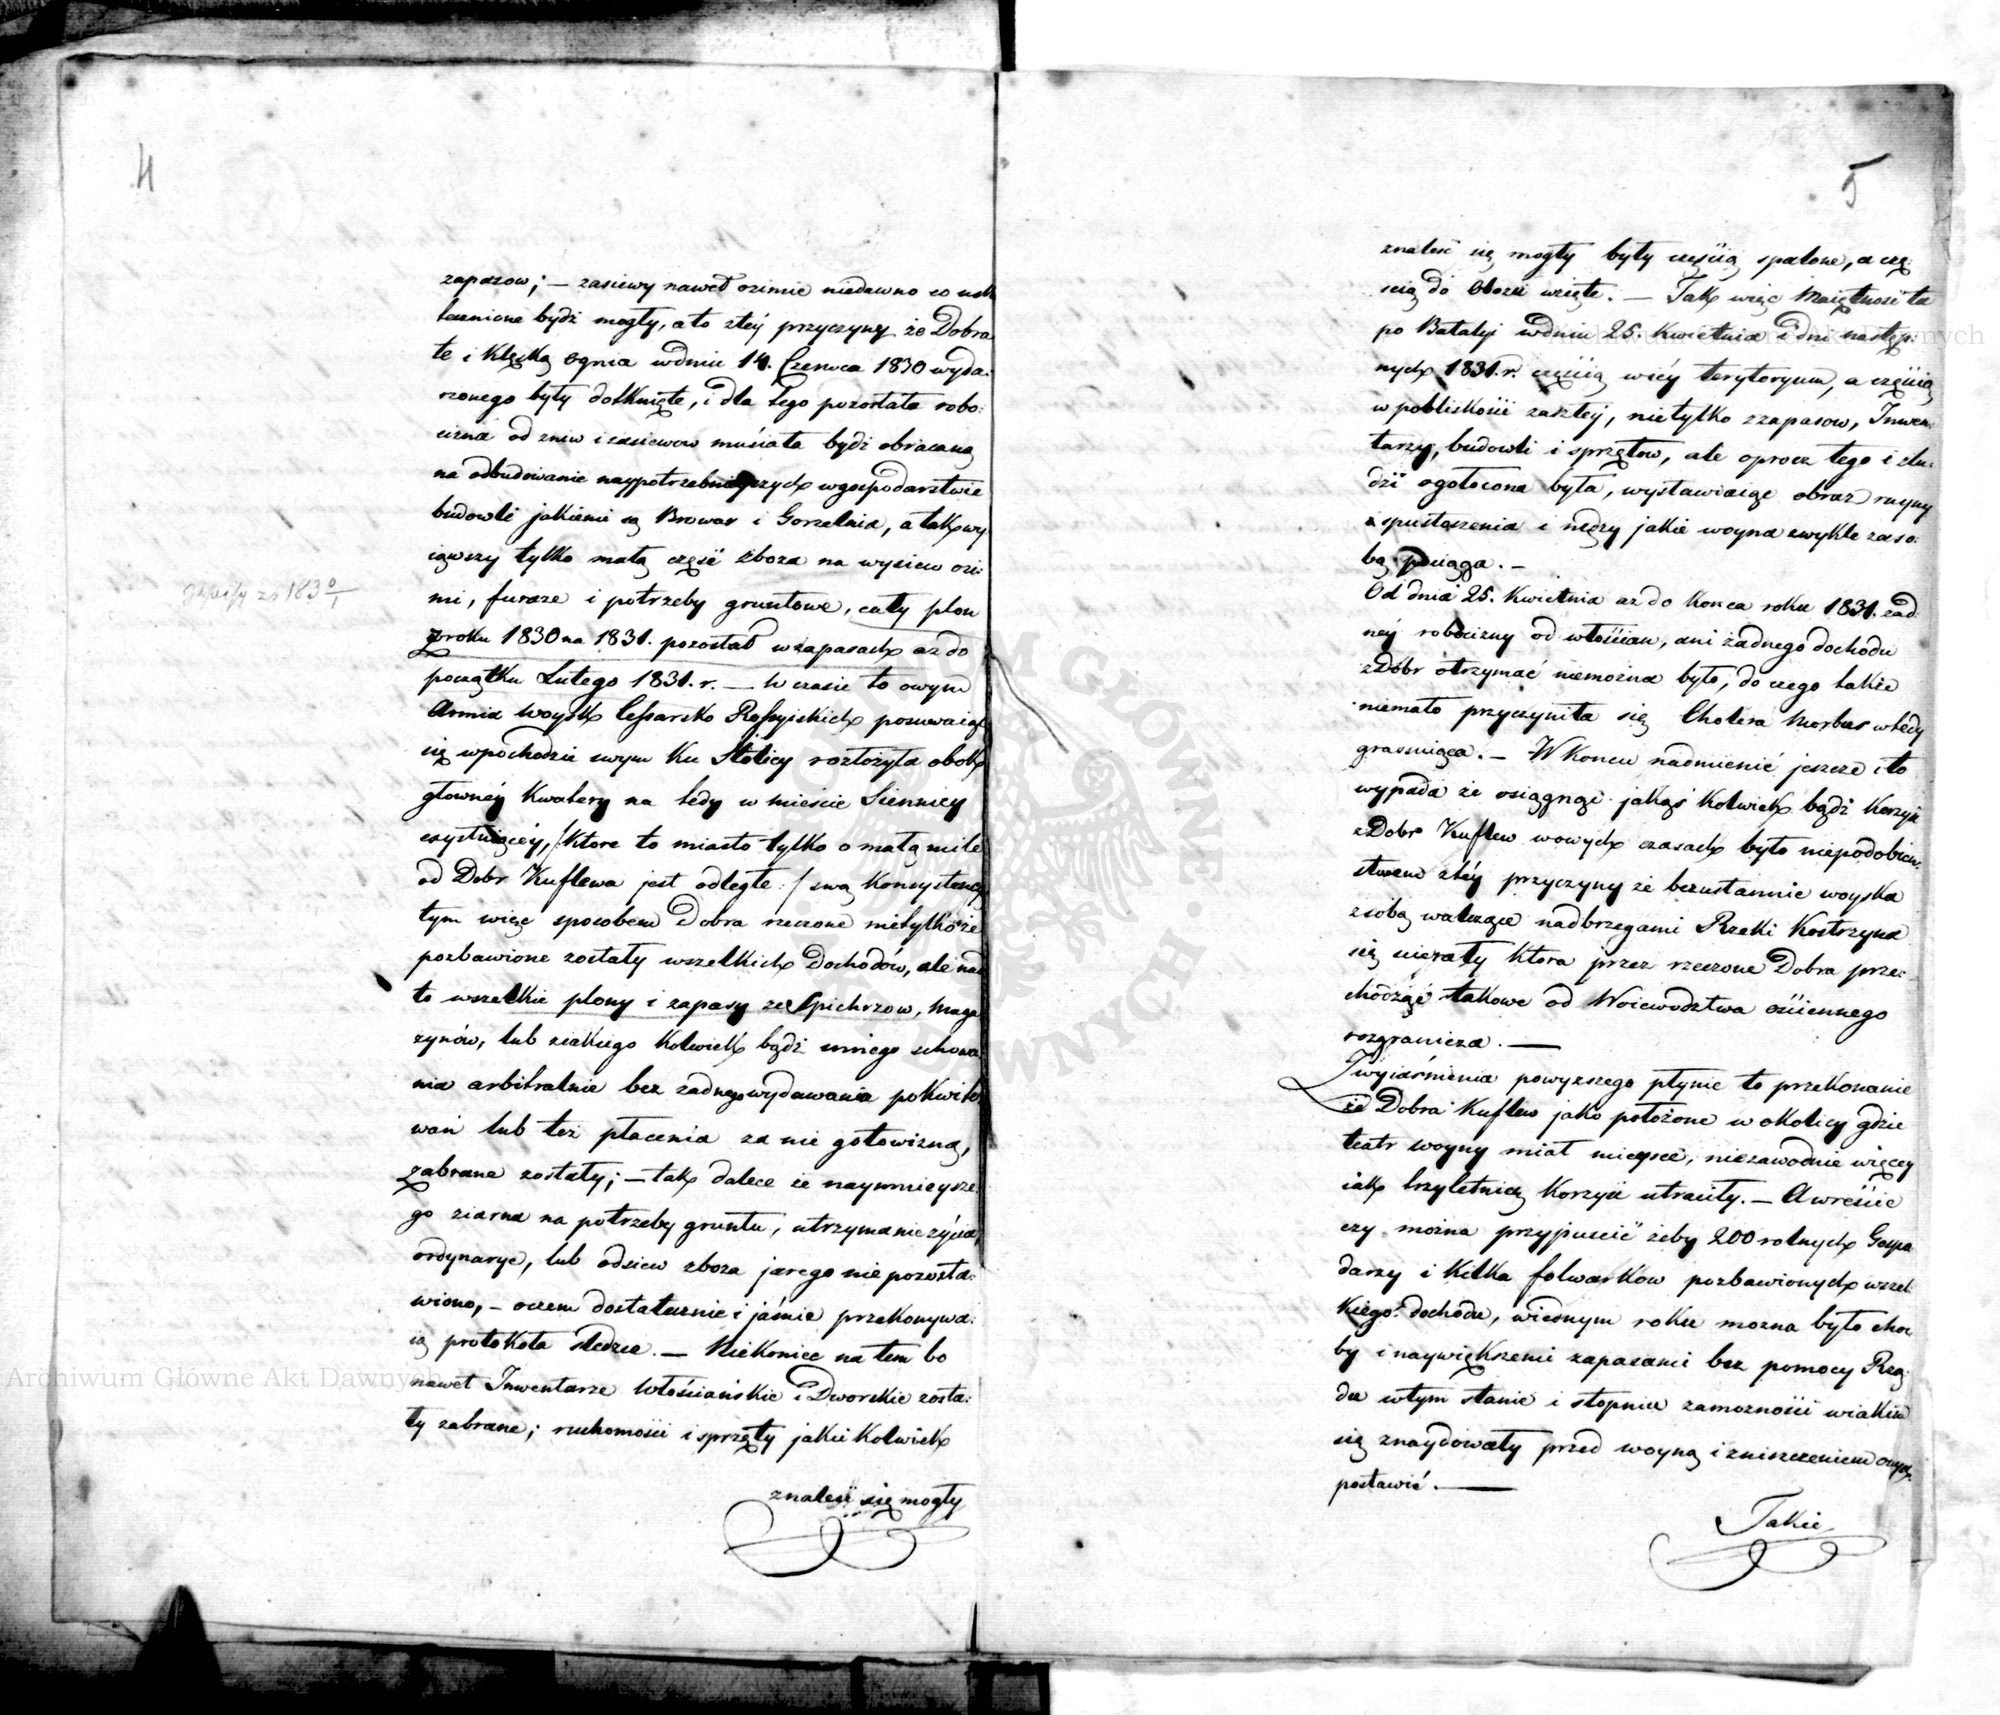 4
zapasow; — zasiewy nawet ozimie niedawno co usku
tecznione bydź mogły, a to z tey przyczyny że Dobra
te i Klęską Ognia w dniu 14. Czerwca 1830 wyda-
rzonego były dotknięte, i dla tego pozostała robo:
cizna od zniw i zasiewow musiała bydź obracaną
na odbudowanie naypotrzebnieyszych w gospodarstwie
budowli jakiemi są Browar i Gorzelnia, a tak wy
iąwszy tylko małą część zboza na wysiew ozi:
mi, furaze i potrzeby gruntowe, cały plon
z roku 1830 na 1831. pozostał w zapasach az do
początku Lutego 1831. r. — W czasie to owym
Armia Woysk Cesarsko Rossyiskich posuwaiąc
się w pochodzie swym Ku Stolicy rozłożyła obok
głowney Kwatery na tedy w mieście Siennicy
exystuiącéy, /: Ktore to miasto tylko o małą milę
od Dobr Kuflewa jest odległe :/ swą Konsystencyą
tym więc sposobem Dobra rzeczone nietylko że
pozbawione zostały wszelkich Dochodów, ale nad
to wszelkie plony i zapasy ze Spichrzow, Maga
zynów, lub ziakiego Kolwiek bądź innego schowa
nia arbitralnie bez zadnego wydawania pokwito
wań lub też płacenia za nie gotowizną,
zabrane zostały; — tak dalece że naymnieysze
go ziarna na potrzeby gruntu, utrzymanie życia,
ordynarye, lub odsiew zboza jarego nie pozosta:
wiono, — oczem dostatecznie i jaśnie przekonywa:
ią protokoła śledcze. — Niekoniec na tem bo
nawet Inwentarze Włościańskie i Dworskie zosta:
ły zabrane; ruchomości i sprzęty jakie Kolwiek
znaleść się mogły
zapasy za 1830/1
5
znaleść się mogły były częścią spalone, a czę:
ścią do Obozu wzięte. — Tak więc Maiętność ta
po Batalyi w dniu 25. Kwietnia i dni następ:
nych 1831. r. częścią wiéy terytoryum, a częścią
w pobliskości zaszłej, nietylko z zapasow, Inwen
tarzy, budowli i sprzętow, ale oprocz tego i z lu:
dzi ogołocona była, wystawiaiąc obraz ruyny
spustoszenia i nędzy jakie woyna zwykle za so:
bą pociąga. —
Od dnia 25. Kwietnia az do Konca roku 1831. żad
néj robocizny od włościan, ani żadnego dochodu
z Dóbr otrzymać niemożna było, do czego także
niemało przyczyniła się Cholera Morbus wtedy
grassuiąca. — W Koncu nadmienić jeszcze i to
wypada że osiągnąć jakąś Kolwiek bądź Korzyść
z Dobr Kuflew w owych czasach było niepodobień:
stwem z téy przyczyny że bezustannie woyska
z sobą walczące nad brzegami Rzeki Kostrzyna
się ucierały Ktora przez rzeczone Dobra prze:
chodząc takowe od Woiewodztwa ościennego
rozgranicza. —
Z wyiaśnienia powyzszego płynie to przekonanie
że Dobra Kuflew jako położone w okolicy gdzie
teatr woyny miał mieysce, niezawodnie więcey
iak trzyletnią Korzyść utraciły. — A wreście
czy można przypuścić żeby 200 rolnych Gospo
darzy i Kilka folwarkow pozbawionych wszel
kiego dochodu, wiednym roku mozna było cho
by i naywiększemi zapasami bez pomocy Rzą
du w tym stanie i stopniu zamozności w iakim
się znaydowały przed woyną i zniszczeniem onych
postawić. —
Takie